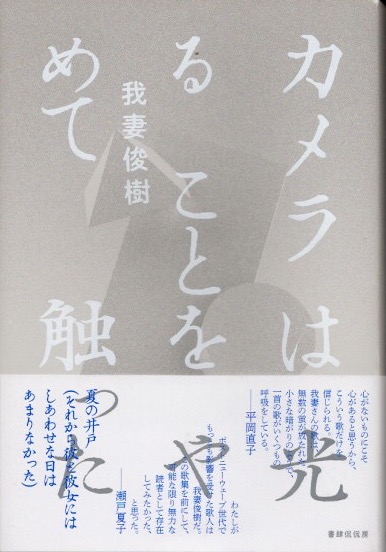 カメラは光
ることをや
めて触った
我妻俊樹
心がないものにこそ
心があると思うから、
こういう歌だけを
信じられる。
我妻さんの歌は、
無数の蛍が放たれた
小さな暗がりのようで、
一首の歌がいくつもの
呼吸をしている。
──平岡直子
わたしが
ポストニューウェーブ世代で
もっとも影響を受けた歌人は
我妻俊樹だ。
この歌集を前にして、
可能な限り無力な
読者として存在
してみたかった、
と思った。
──瀬戸夏子
夏の井戸
(それから彼と彼女には
しあわせな日は
あまりなかった)
書肆侃侃房